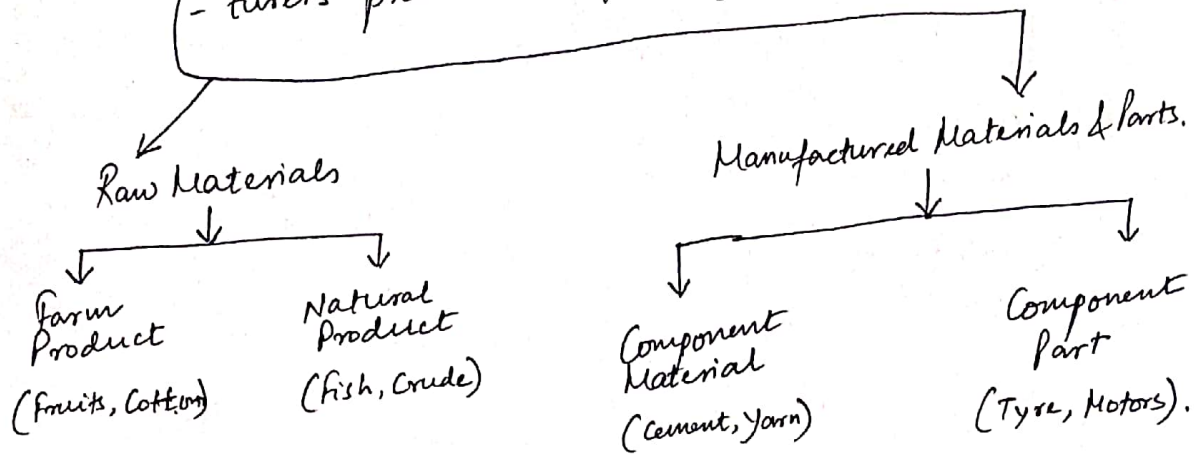 - turers
Raw Materials
Manufactured Materials & Parts.
Farm
Product
(Fruits, Cotton)
Natural
Product
(Fish, Crude)
Component
Material
(Cement, Yarn)
Component
Part
(Tyre, Motors).